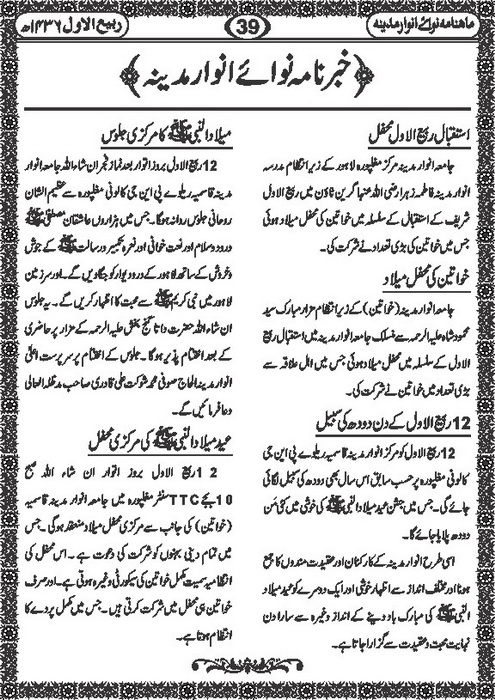 ماہنامہ نوائے انوار مدینہ
39
ربیع الاول ۱۴۳۶ھ
خبر نامہ نوائے انوار مدینہ
استقبال ربیع الاول محفل
جامعہ انوار مدینہ مرکز مغلپورہ لاہور کے زیر انتظام مدرسہ
انوار مدینہ فاطمہ زہرا رضی اللہ عنہا گرین ٹاؤن میں ربیع الاول
شریف کے استقبال کے سلسلہ میں خواتین کی محفل میلاد ہوئی
جس میں خواتین کی بڑی تعداد نے شرکت کی۔
خواتین کی محفل میلاد
جامعہ انوار مدینہ (خواتین) کے زیر انتظام مزار مبارک سید
محمود شاہ علیہ الرحمہ سے منسلک جامعہ انوار مدینہ میں استقبال ربیع
الاول کے سلسلہ میں محفل میلاد ہوئی جس میں اہل علاقہ سے
بڑی تعداد میں خواتین نے شرکت کی۔
12 ربیع الاول کے دن دودھ کی سبیل
12 ربیع الاول کو مرکز انوار مدینہ قاسمیہ ریلوے پی این جی
کالونی مغلپورہ پر حسب سابق اس سال بھی دودھ کی سبیل لگائی
جائے گی۔ جس میں جشن عید میلاد النبی ﷺ کی خوشی میں کئی من
دودھ پلایا جائے گا۔
اسی طرح انوار مدینہ کے کارکنان اور عقیدت مندوں کا جمع
ہونا اور مختلف انداز سے اظہار خوشی اور ایک دوسرے کو عید میلاد
النبی ﷺ کی مبارک باد دینے کے انداز وغیرہ سے سارا دن
نہایت محبت و عقیدت سے گزارا جاتا ہے۔
میلاد النبی ﷺ کا مرکزی جلوس
12 ربیع الاول بروز اتوار بعد نماز فجر ان شاء اللہ جامعہ انوار
مدینہ قاسمیہ ریلوے پی این جی کالونی مغلپورہ سے عظیم الشان
روحانی جلوس روانہ ہوگا۔ جس میں ہزاروں عاشقان مصطفیٰ ﷺ
درود و سلام اور نعت خوانی اور نعرہ تکبیر و رسالت ﷺ کے جوش
وخروش کے ساتھ لاہور کے در و دیوار کو جگا دیں گے۔ اور سر زمین
لاہور میں نبی کریم ﷺ سے محبت کا اظہار کریں گے۔ یہ جلوس
ان شاء اللہ حضرت داتا گنج بخش علیہ الرحمہ کے مزار پر حاضری
کے بعد اختتام پذیر ہوگا۔ جلوس کے اختتام پر سرپرست اعلیٰ
انوار مدینہ الحاج صوفی محمد شوکت علی قادری صاحب مدظلہ العالی
دعا فرمائیں گے۔
عید میلاد النبی ﷺ کی مرکزی محفل
12 ربیع الاول بروز اتوار ان شاء اللہ صبح
10 بجے TTC سنٹر مغلپورہ میں جامعہ انوار مدینہ قاسمیہ
(خواتین) کی جانب سے مرکزی محفل میلاد منعقد ہوگی۔ جس
میں تمام دینی بہنوں کو شرکت کی دعوت ہے۔ اس محفل کی
انتظامیہ سمیت مکمل خواتین کی سیکورٹی وغیرہ ہوتی ہے۔ اور صرف
خواتین ہی محفل میں شرکت کرتی ہیں۔ جس میں مکمل پردے کا
انتظام ہوتا ہے۔